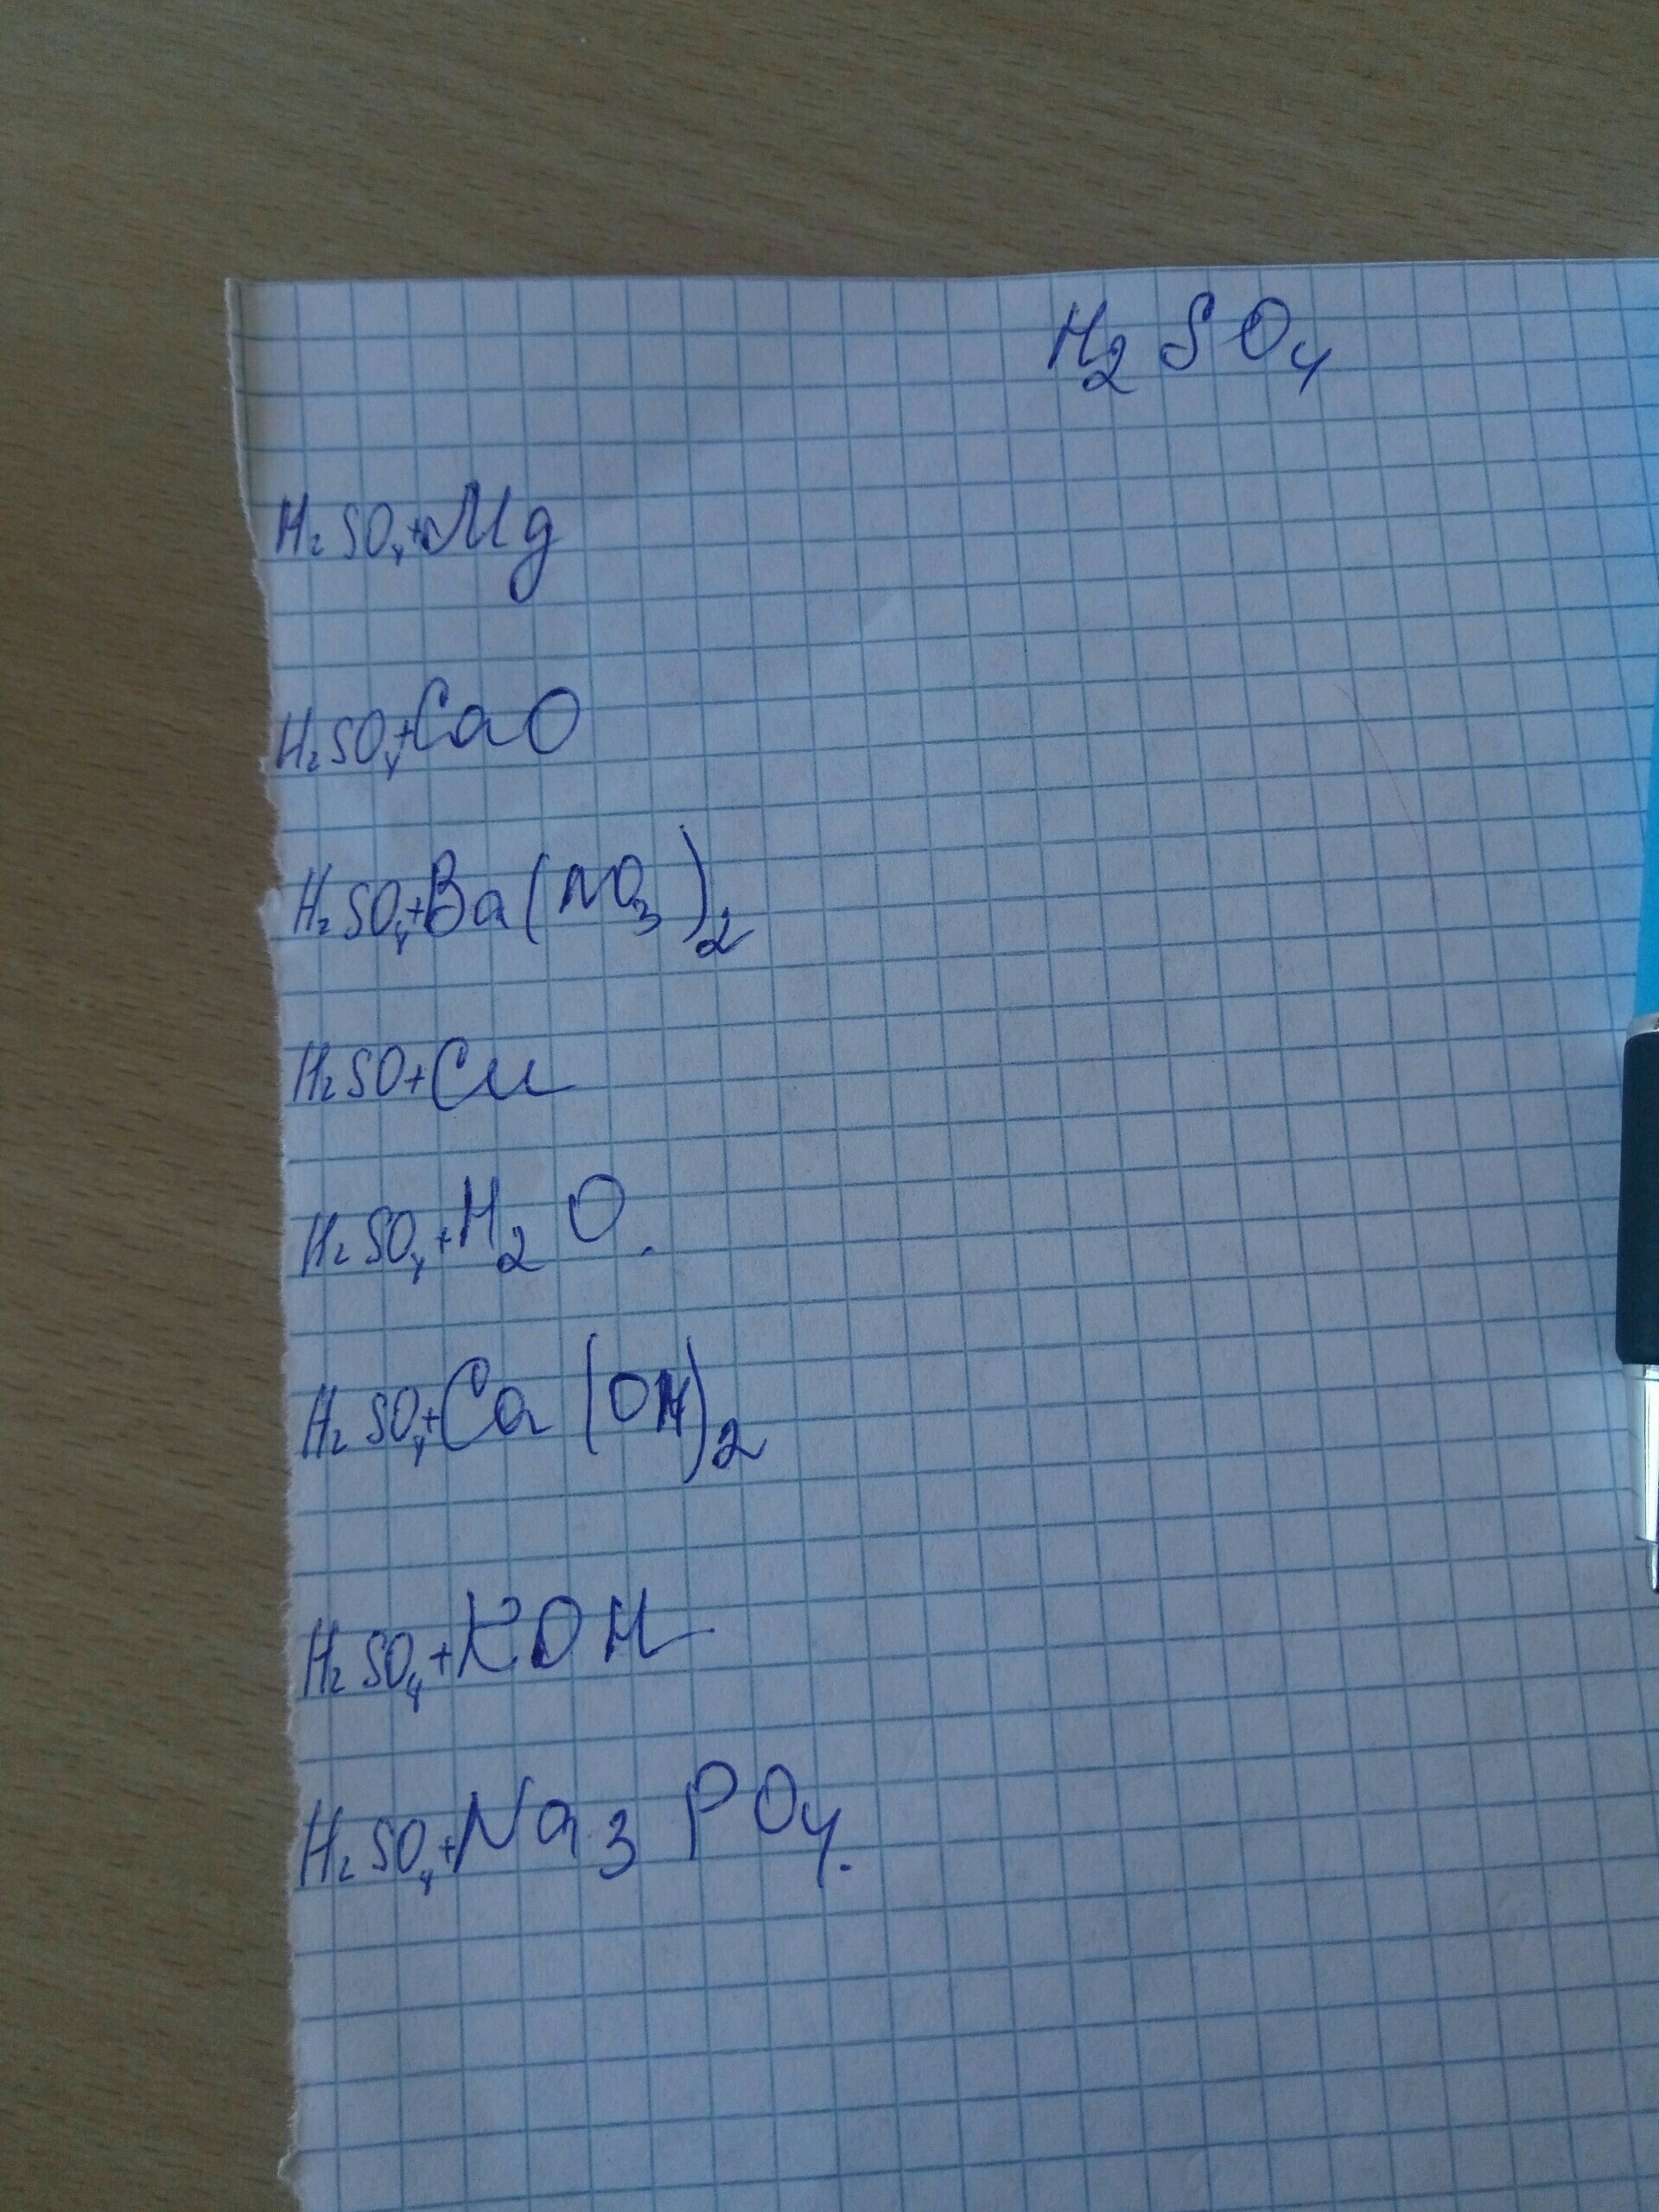 H₂SO₄
H₂SO₄+Mg
H₂SO₄+CaO
H₂SO₄+Ba(NO₃)₂
H₂SO+Cu
H₂SO₄+H₂O.
H₂SO₄+Ca(OH)₂
H₂SO₄+KOH
H₂SO₄+Na₃PO₄.